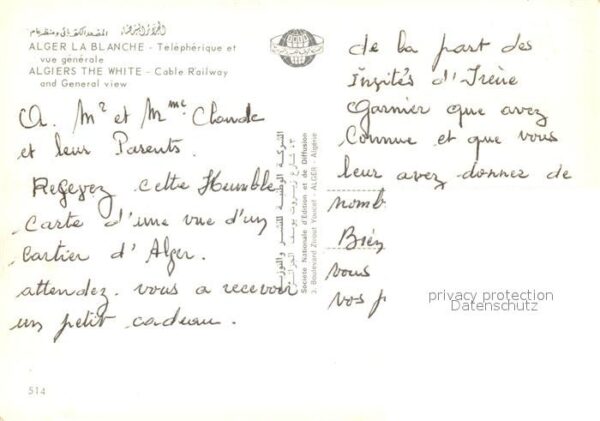 ALGER LA BLANCHE - Téléphérique et
vue générale
ALGIERS THE WHITE - Cable Railway
and General view
A. Mr et Mme Claude
et leur Parents.
Reçevez cette Humble
carte d'une vue d'un
cartier d'Alger.
attendez vous a recevoir
un petit cadeau.
514
الشركة الوطنية للنشر والتوزيع
Société Nationale d'Edition et de Diffusion
3, Boulevard Zirout Youcef - ALGER - Algérie
de la part des
Invités d'Irène
Garnier que avez
Connue et que vous
leur avez donner de
nomb
Bien
vous
vos p
privacy protection
Datenschutz